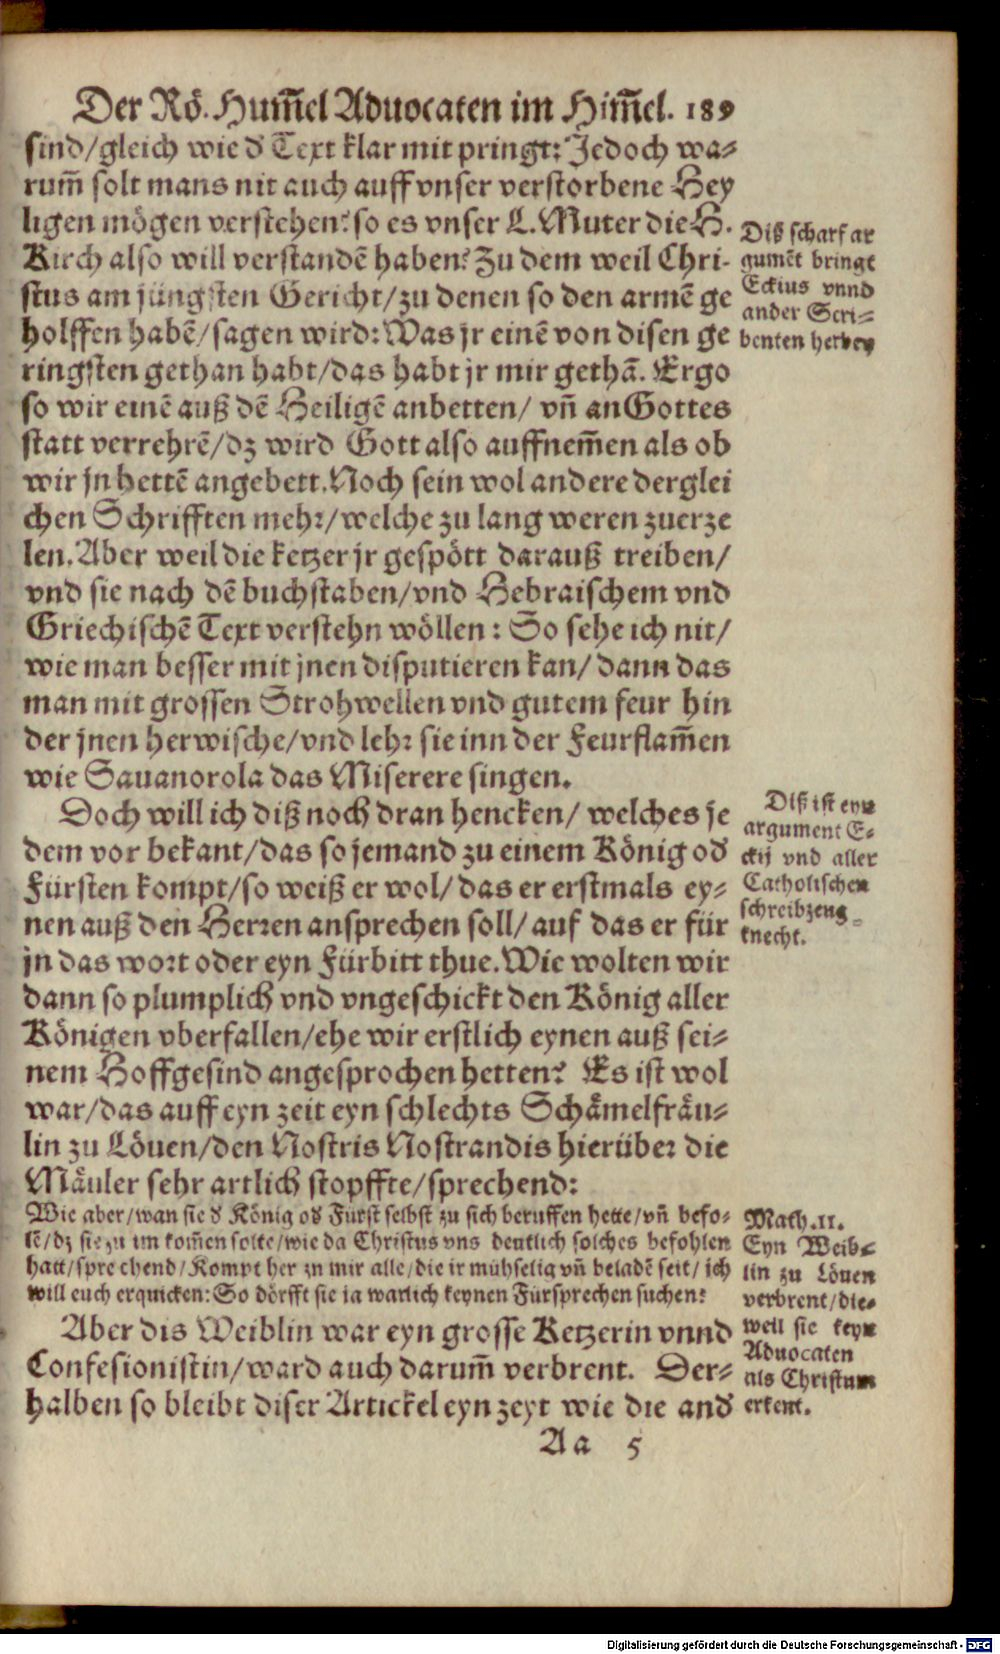 Der Rö. Hum̃el Aduocaten im Him̃el. 189
sind/gleich wie d' Text klar mit pringt: Jedoch wa-
rum̃ solt mans nit auch auff vnser verstorbene Hey
ligen mögen verstehen? so es vnser L. Muter die H.
Kirch also will verstandẽ haben? Zu dem weil Chri-
stus am jüngsten Gericht/zu denen so den armẽ ge
holffen habẽ/sagen wird: Was jr einẽ von disen ge
ringsten gethan habt/das habt jr mir gethã. Ergo
so wir einẽ auß dẽ Heiligẽ anbetten/ vñ an Gottes
statt verrehrẽ/dz wird Gott also auffnem̃en als ob
wir jn hettẽ angebett. Noch sein wol andere derglei
chen Schrifften mehr/welche zu lang weren zuerze
len. Aber weil die ketzer jr gespött darauß treiben/
vnd sie nach dẽ buchstaben/vnd Hebraischem vnd
Griechischẽ Text verstehn wöllen: So sehe ich nit/
wie man besser mit jnen disputieren kan/ dann das
man mit grossen Strohwellen vnd gutem feur hin
der jnen herwische/vnd lehr sie inn der Feurflam̃en
wie Sauanorola das Miserere singen.
Doch will ich diß noch dran hencken/ welches je
dem vor bekant/das so jemand zu einem König od'
Fürsten kompt/so weiß er wol/das er erstmals ey-
nen auß den Herren ansprechen soll/ auf das er für
jn das wort oder eyn Fürbitt thue. Wie wolten wir
dann so plumplich vnd vngeschickt den König aller
Königen vberfallen/ehe wir erstlich eynen auß sei-
nem Hoffgesind angesprochen hetten? Es ist wol
war/das auff eyn zeit eyn schlechts Schämelfräu-
lin zu Löuen/den Nostris Nostrandis hierüber die
Mäuler sehr artlich stopffte/sprechend:
Wie aber/wan sie d' König od' Fürst selbst zu sich beruffen hette/vñ befo-
lẽ/dz sie zu im kom̃en solte/wie da Christus vns deutlich solches befohlen
hatt/sprechend/Kompt her zu mir alle/die ir mühselig vñ beladẽ seit/ ich
will euch erquicken: So dörfft sie ja warlich keynen Fürsprechen suchen?
Aber dis Weiblin war eyn grosse Ketzerin vnnd
Confesionistin/ward auch darum̃ verbrent. Der-
halben so bleibt diser Artickel eyn zeyt wie die and'
Aa 5
Diß scharf ar
gumẽt bringt
Eckius vnnd
ander Scri-
benten herbey
Diß ist eyn
argument E-
ckij vnd aller
Catholischen
schreibzeug-
knecht.
Math. 11.
Eyn Weib-
lin zu Löuen
verbrent/die-
weil sie keyn
Aduocaten
als Christum
erkent.
Digitalisierung gefördert durch die Deutsche Forschungsgemeinschaft - DFG